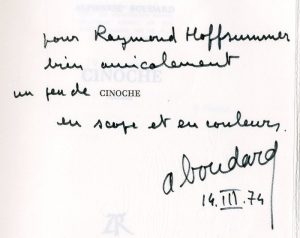 ALPHONSE BOUDARD
pour Raymond Hoffsummer
bien amicalement
CINOCHE
un peu de CINOCHE
en scope et en couleurs.
aboudard
14.III.74